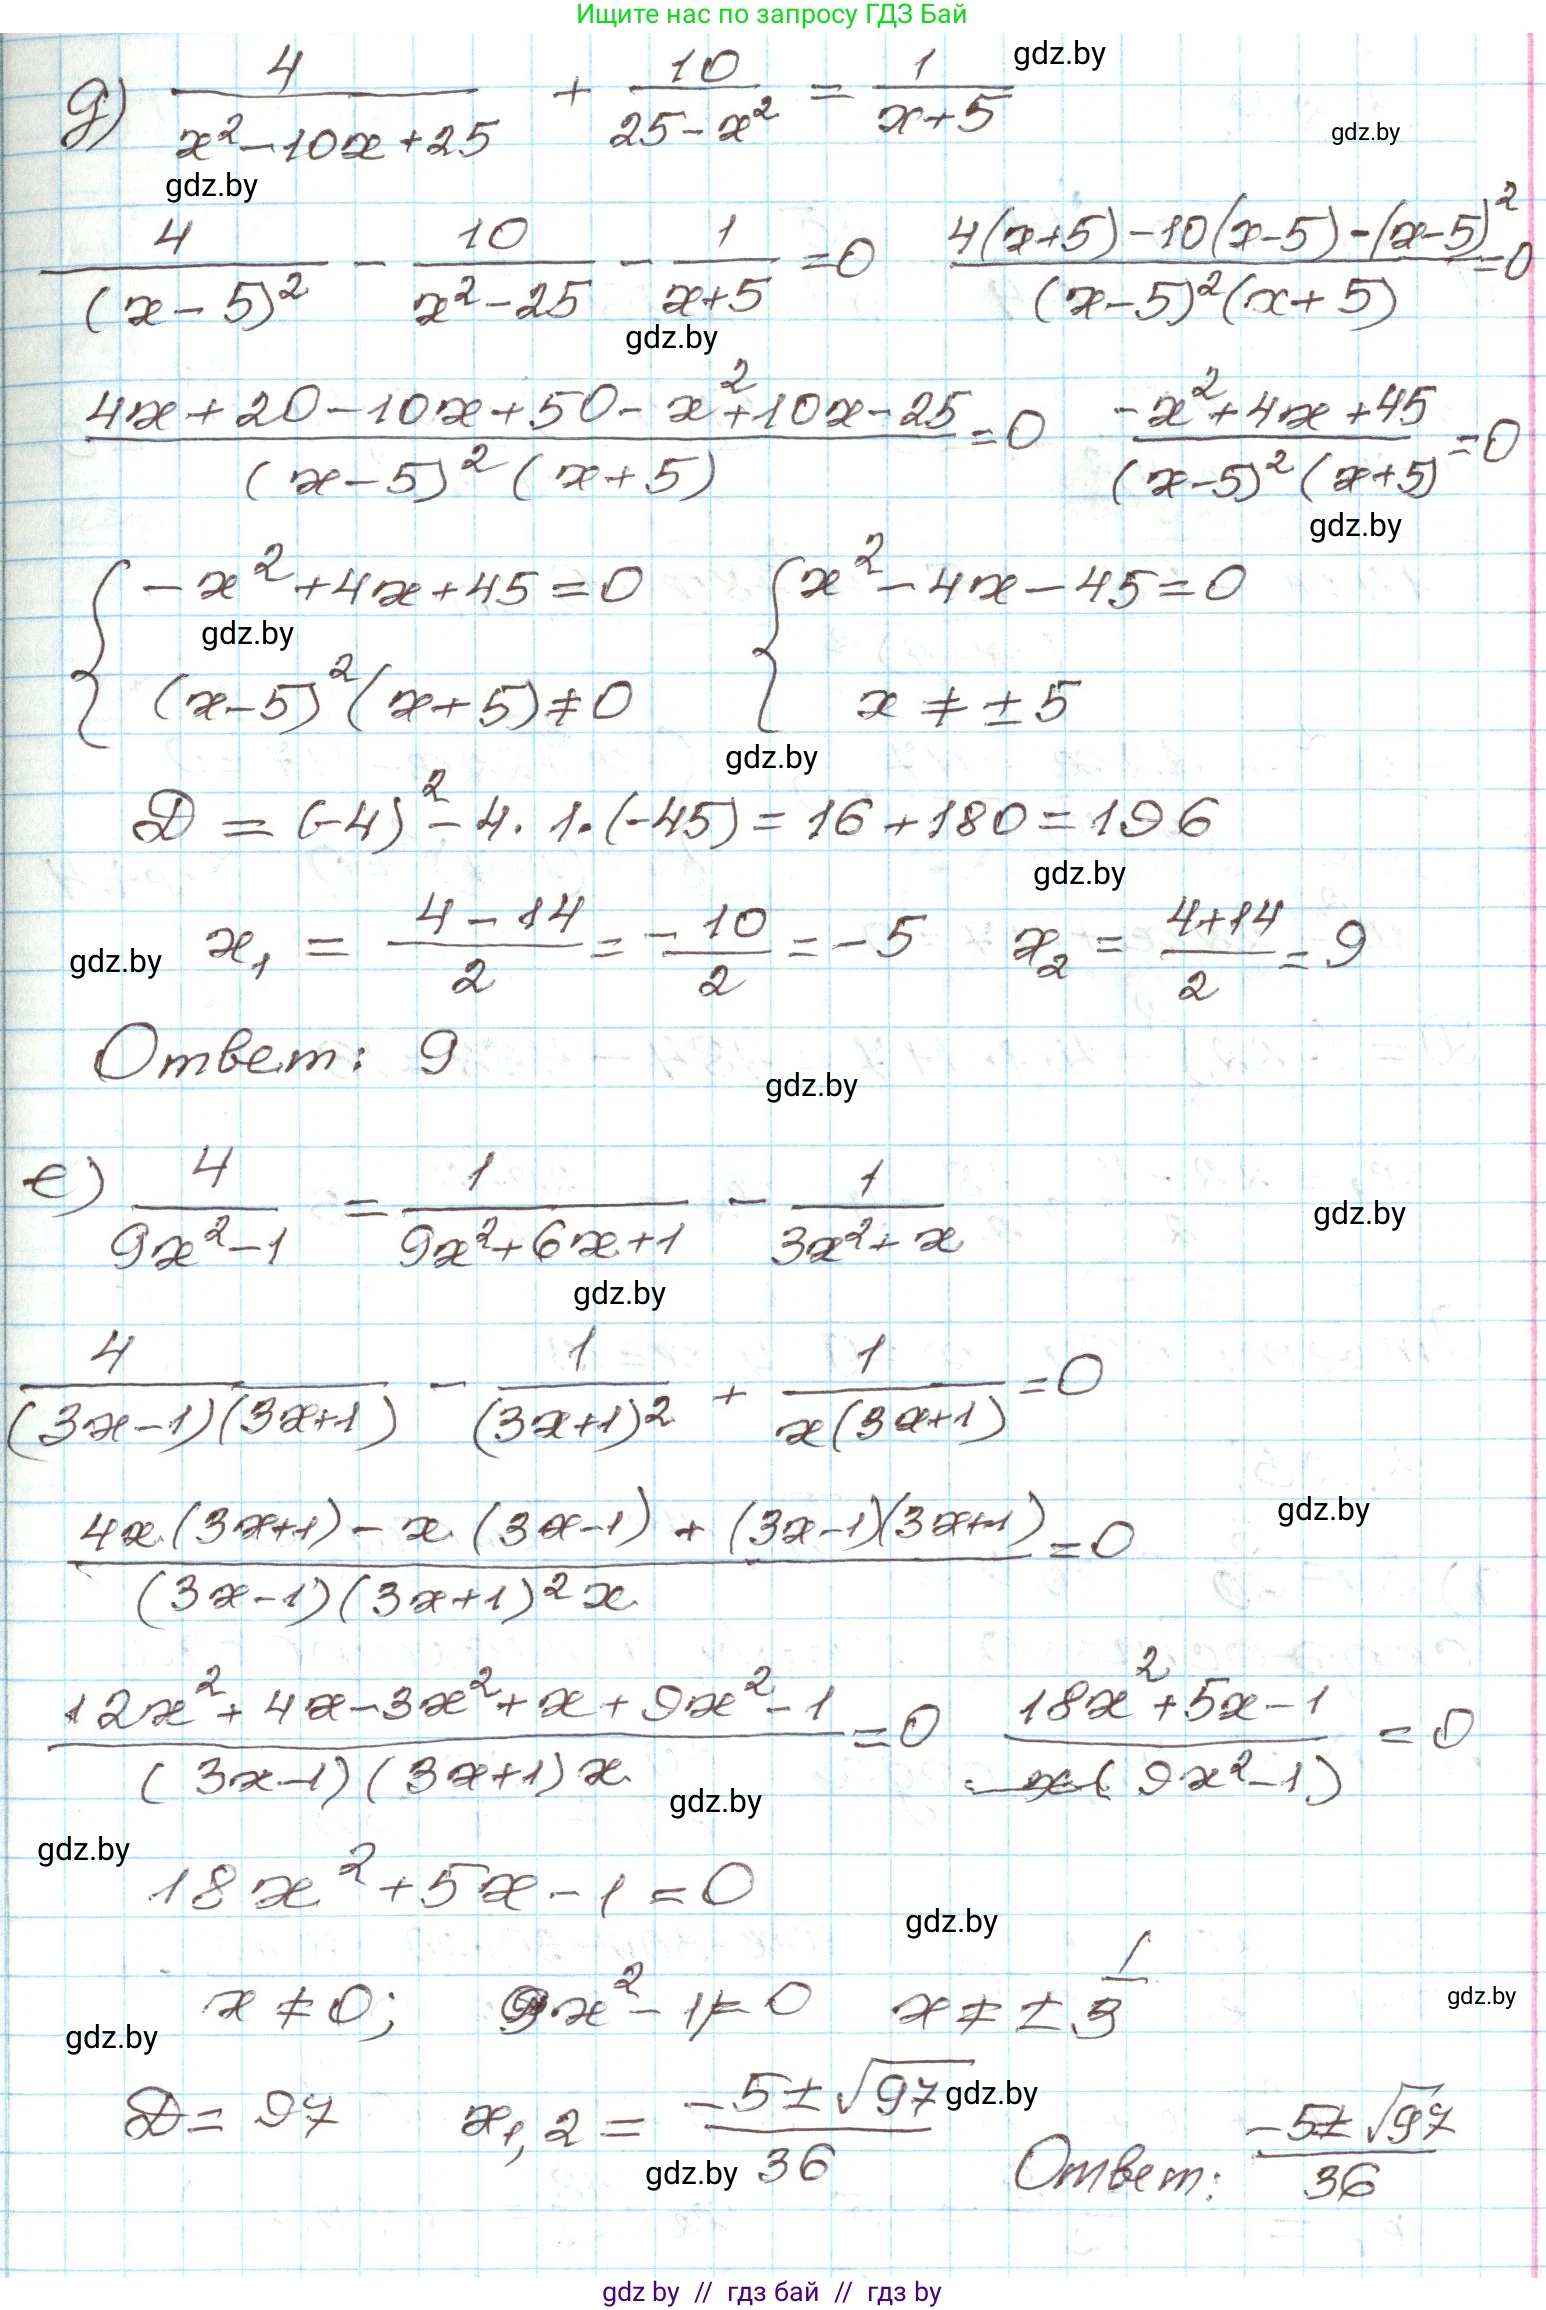 Ищите нас по запросу ГДЗ Бай
д) 4/(x²-10x+25) + 10/(25-x²) = 1/(x+5)
gdz.by
gdz.by
gdz.by
4/(x-5)² - 10/(x²-25) - 1/(x+5) =0 (4(x+5)-10(x-5)-(x-5)²)/((x-5)²(x+5)) =0
gdz.by
(4x+20-10x+50-x²+10x-25)/((x-5)²(x+5)) =0 (-x²+4x+45)/((x-5)²(x+5)) =0
gdz.by
{ -x²+4x+45=0 { x²-4x-45=0
gdz.by
(x-5)²(x+5)≠0 x≠±5
gdz.by
D = (-4)²-4·1·(-45)=16+180=196
gdz.by
gdz.by x₁ = (4-14)/2 = -10/2 = -5 x₂ = (4+14)/2 = 9
Ответ: 9
gdz.by
е) 4/(9x²-1) = 1/(9x²+6x+1) - 1/(3x²+x)
gdz.by
gdz.by
4/((3x-1)(3x+1)) - 1/(3x+1)² + 1/(x(3x+1)) =0
gdz.by
(4x(3x+1)-x(3x-1)+(3x-1)(3x+1))/((3x-1)(3x+1)²x) =0
(12x²+4x-3x²+x+9x²-1)/((3x-1)(3x+1)x) =0 (18x²+5x-1)/(x(9x²-1)) =0
gdz.by
gdz.by
18x²+5x-1=0
gdz.by
x≠0; 9x²-1≠0 x≠±1/3
gdz.by
gdz.by
D=97 x₁,₂ = (-5±√97)/36 Ответ: (-5±√97)/36
gdz.by
gdz.by
gdz by // гдз бай // гдз by